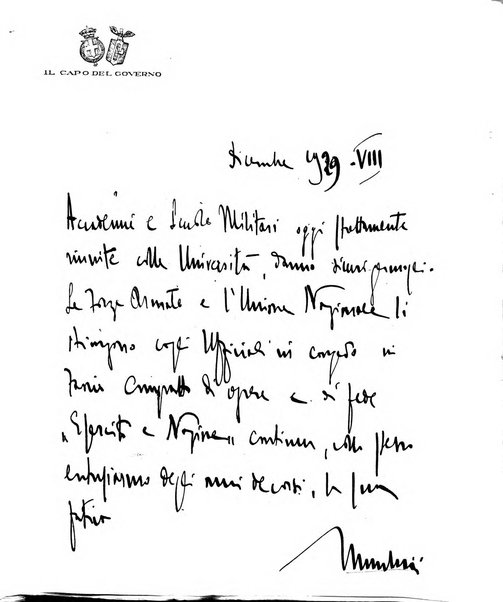 IL CAPO DEL GOVERNO
Dicembre 1929 - VIII
Accademie e Scuole Militari oggi strettamente
riunite colle Università, danno sicuri
Le Forze Armate e l'Unione Nazionale li
stringono cogli Ufficiali in congedo in
fascio compatto di opere e di fede
"Esercito e Nazione" continua, collo stesso
entusiasmo degli anni decorsi, la sua
fatica
Mussolini